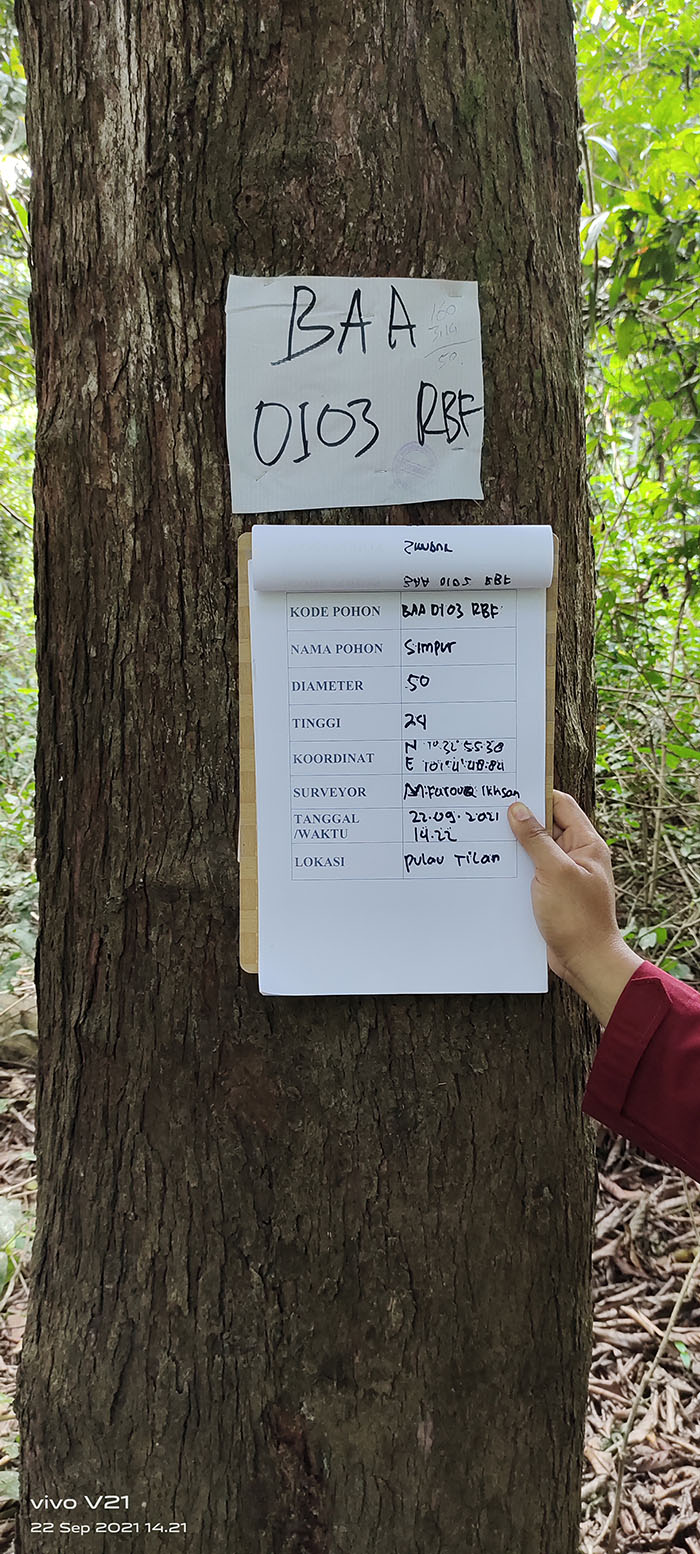 BAA
160
3,14
50
0103 RBF
KODE POHON BAA 0103 RBF
NAMA POHON Simpur
DIAMETER 50
TINGGI 24
KOORDINAT N
E
SURVEYOR M. Farouq Ikhsan
TANGGAL 22.09.2021
/WAKTU 14.22
LOKASI Pulau Tilan
vivo V21
22 Sep 2021 14.21